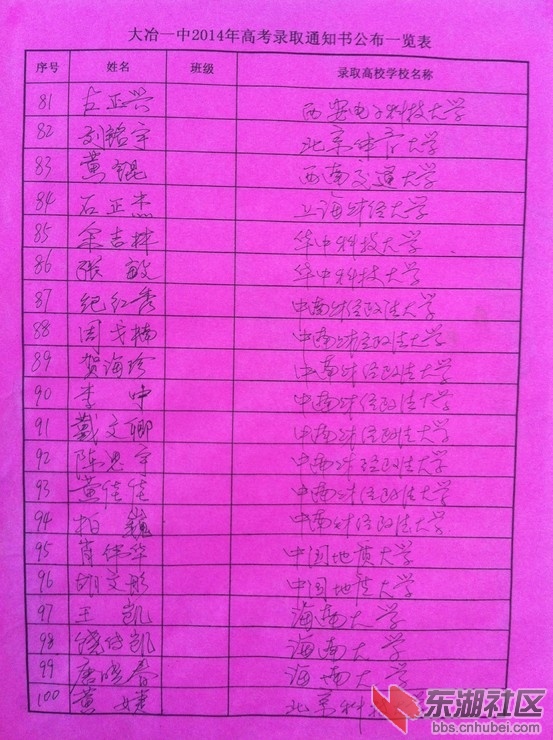 大冶一中2014年高考录取通知书公布一览表
序号 姓名 班级 录取高校学校名称
81 占正兴 西安电子科技大学
82 刘铭宇 北京体育大学
83 黄锟 西南交通大学
84 石正杰 上海财经大学
85 余吉林 华中科技大学
86 张敏 华中科技大学
87 纪红秀 中南财经政法大学
88 周戈楠 中南财经政法大学
89 贺海珍 中南财经政法大学
90 李中 中南财经政法大学
91 戴文卿 中南财经政法大学
92 陈思宇 中南财经政法大学
93 黄佳佳 中南财经政法大学
94 柏巍 中南财经政法大学
95 肖伟华 中国地质大学
96 胡文彤 中国地质大学
97 王凯 海南大学
98 饶传凯 海南大学
99 唐晓春 海南大学
100 黄 北京科
东湖社区
bbs.cnhubei.com